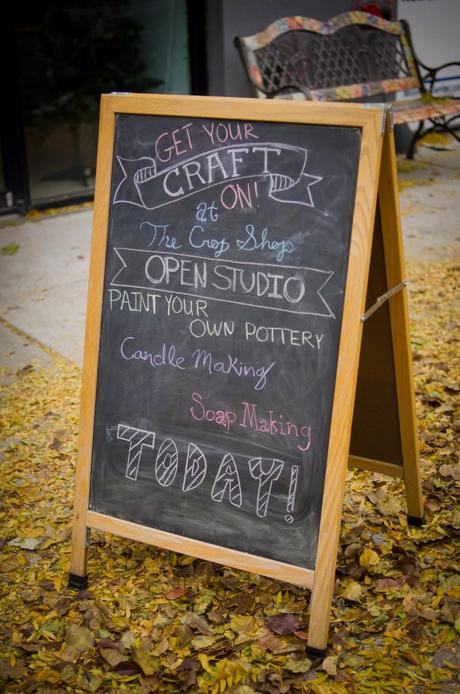 GET YOUR
CRAFT
ON!
at
The Crep Shop
OPEN STUDIO
PAINT YOUR
OWN POTTERY
Candle Making
Soap Making
TODAY!